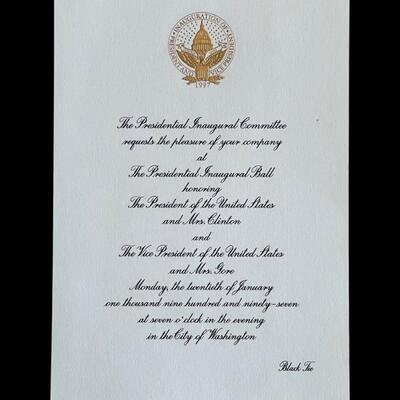 INAUGURATION OF
PRESIDENT AND VICE PRESIDENT
1997
The Presidential Inaugural Committee
requests the pleasure of your company
at
The Presidential Inaugural Ball
honoring
The President of the United States
and Mrs. Clinton
and
The Vice President of the United States
and Mrs. Gore
Monday, the twentieth of January
one thousand nine hundred and ninety-seven
at seven o'clock in the evening
in the City of Washington
Black Tie